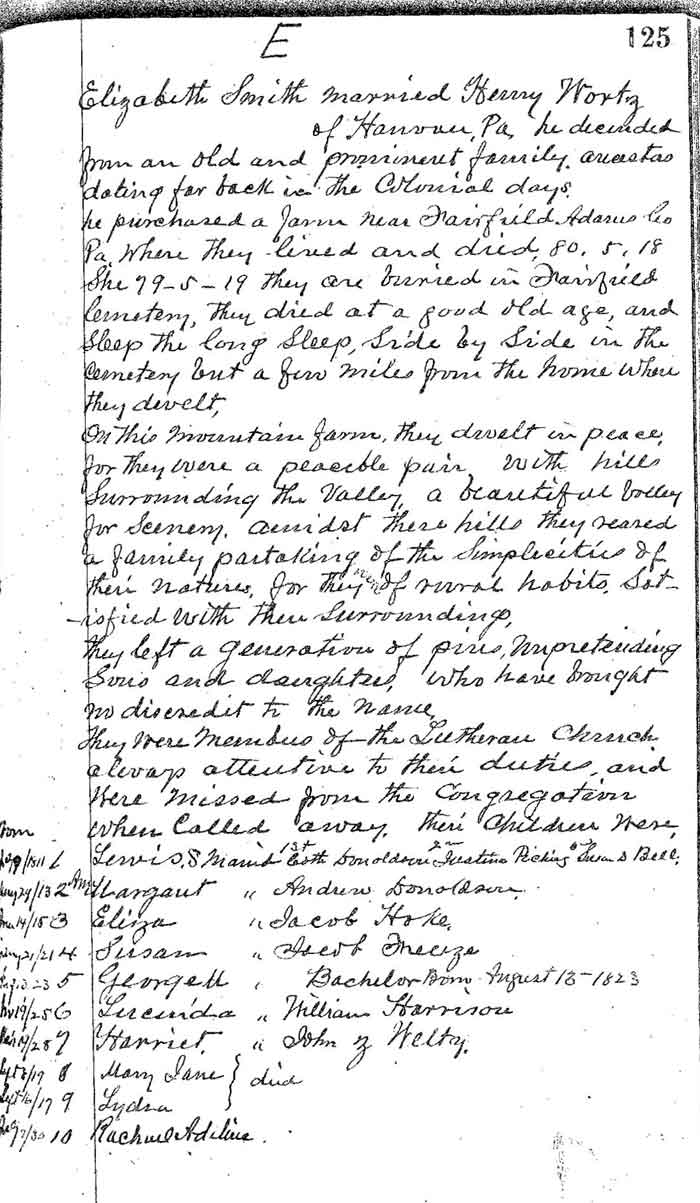 E
125
Elizabeth Smith married Henry Wortz
of Hanover, Pa, he decended
from an old and prominent family, ancestas
dating far back in the Colonial days.
he purchased a farm near Fairfield Adams Co
Pa, Where they lived and died, 80, 5, 18
She 79-5-19 they are buried in Fairfield
Cemetery, they died at a good old age, and
Sleep the long Sleep, Side by Side in the
Cemetery but a few miles from the home where
they dwelt,
On this Mountain farm, they dwelt in peace,
for they were a peacible pair, With hills
Surrounding the Valley, a beautiful Valley
for Scenery, amidst these hills they reared
a family partaking of the Simplicities of
their natures, for they were of rural habits, Sat-
-isfied With their Surrounding,
they left a generation of pius, Unpretending
Sons and daughters, who have brought
no discredit to the Name,
they Were Members of the Lutheran Church
always attentive to their duties, and
Were Missed from the Congregation
when Called away, their Children Were,
Born
1811 1 Lewis, S Married 1st Donaldson 2nd Picking Susan S Bell,
29/13 2 Margaret " Andrew Donaldson.
14/15 3 Eliza " Jacob Hoke,
21/21 4 Susan " Jacob
23 5 George " Bachelor Born August 13-1823
19/25 6 Lucinda " William Harrison
19/28 7 Harriet, " John Z Welty.
Sept 8/19 8 Mary Jane } died
Sept 16/17 9 Lydia
/30 10 Rachael Adiline.